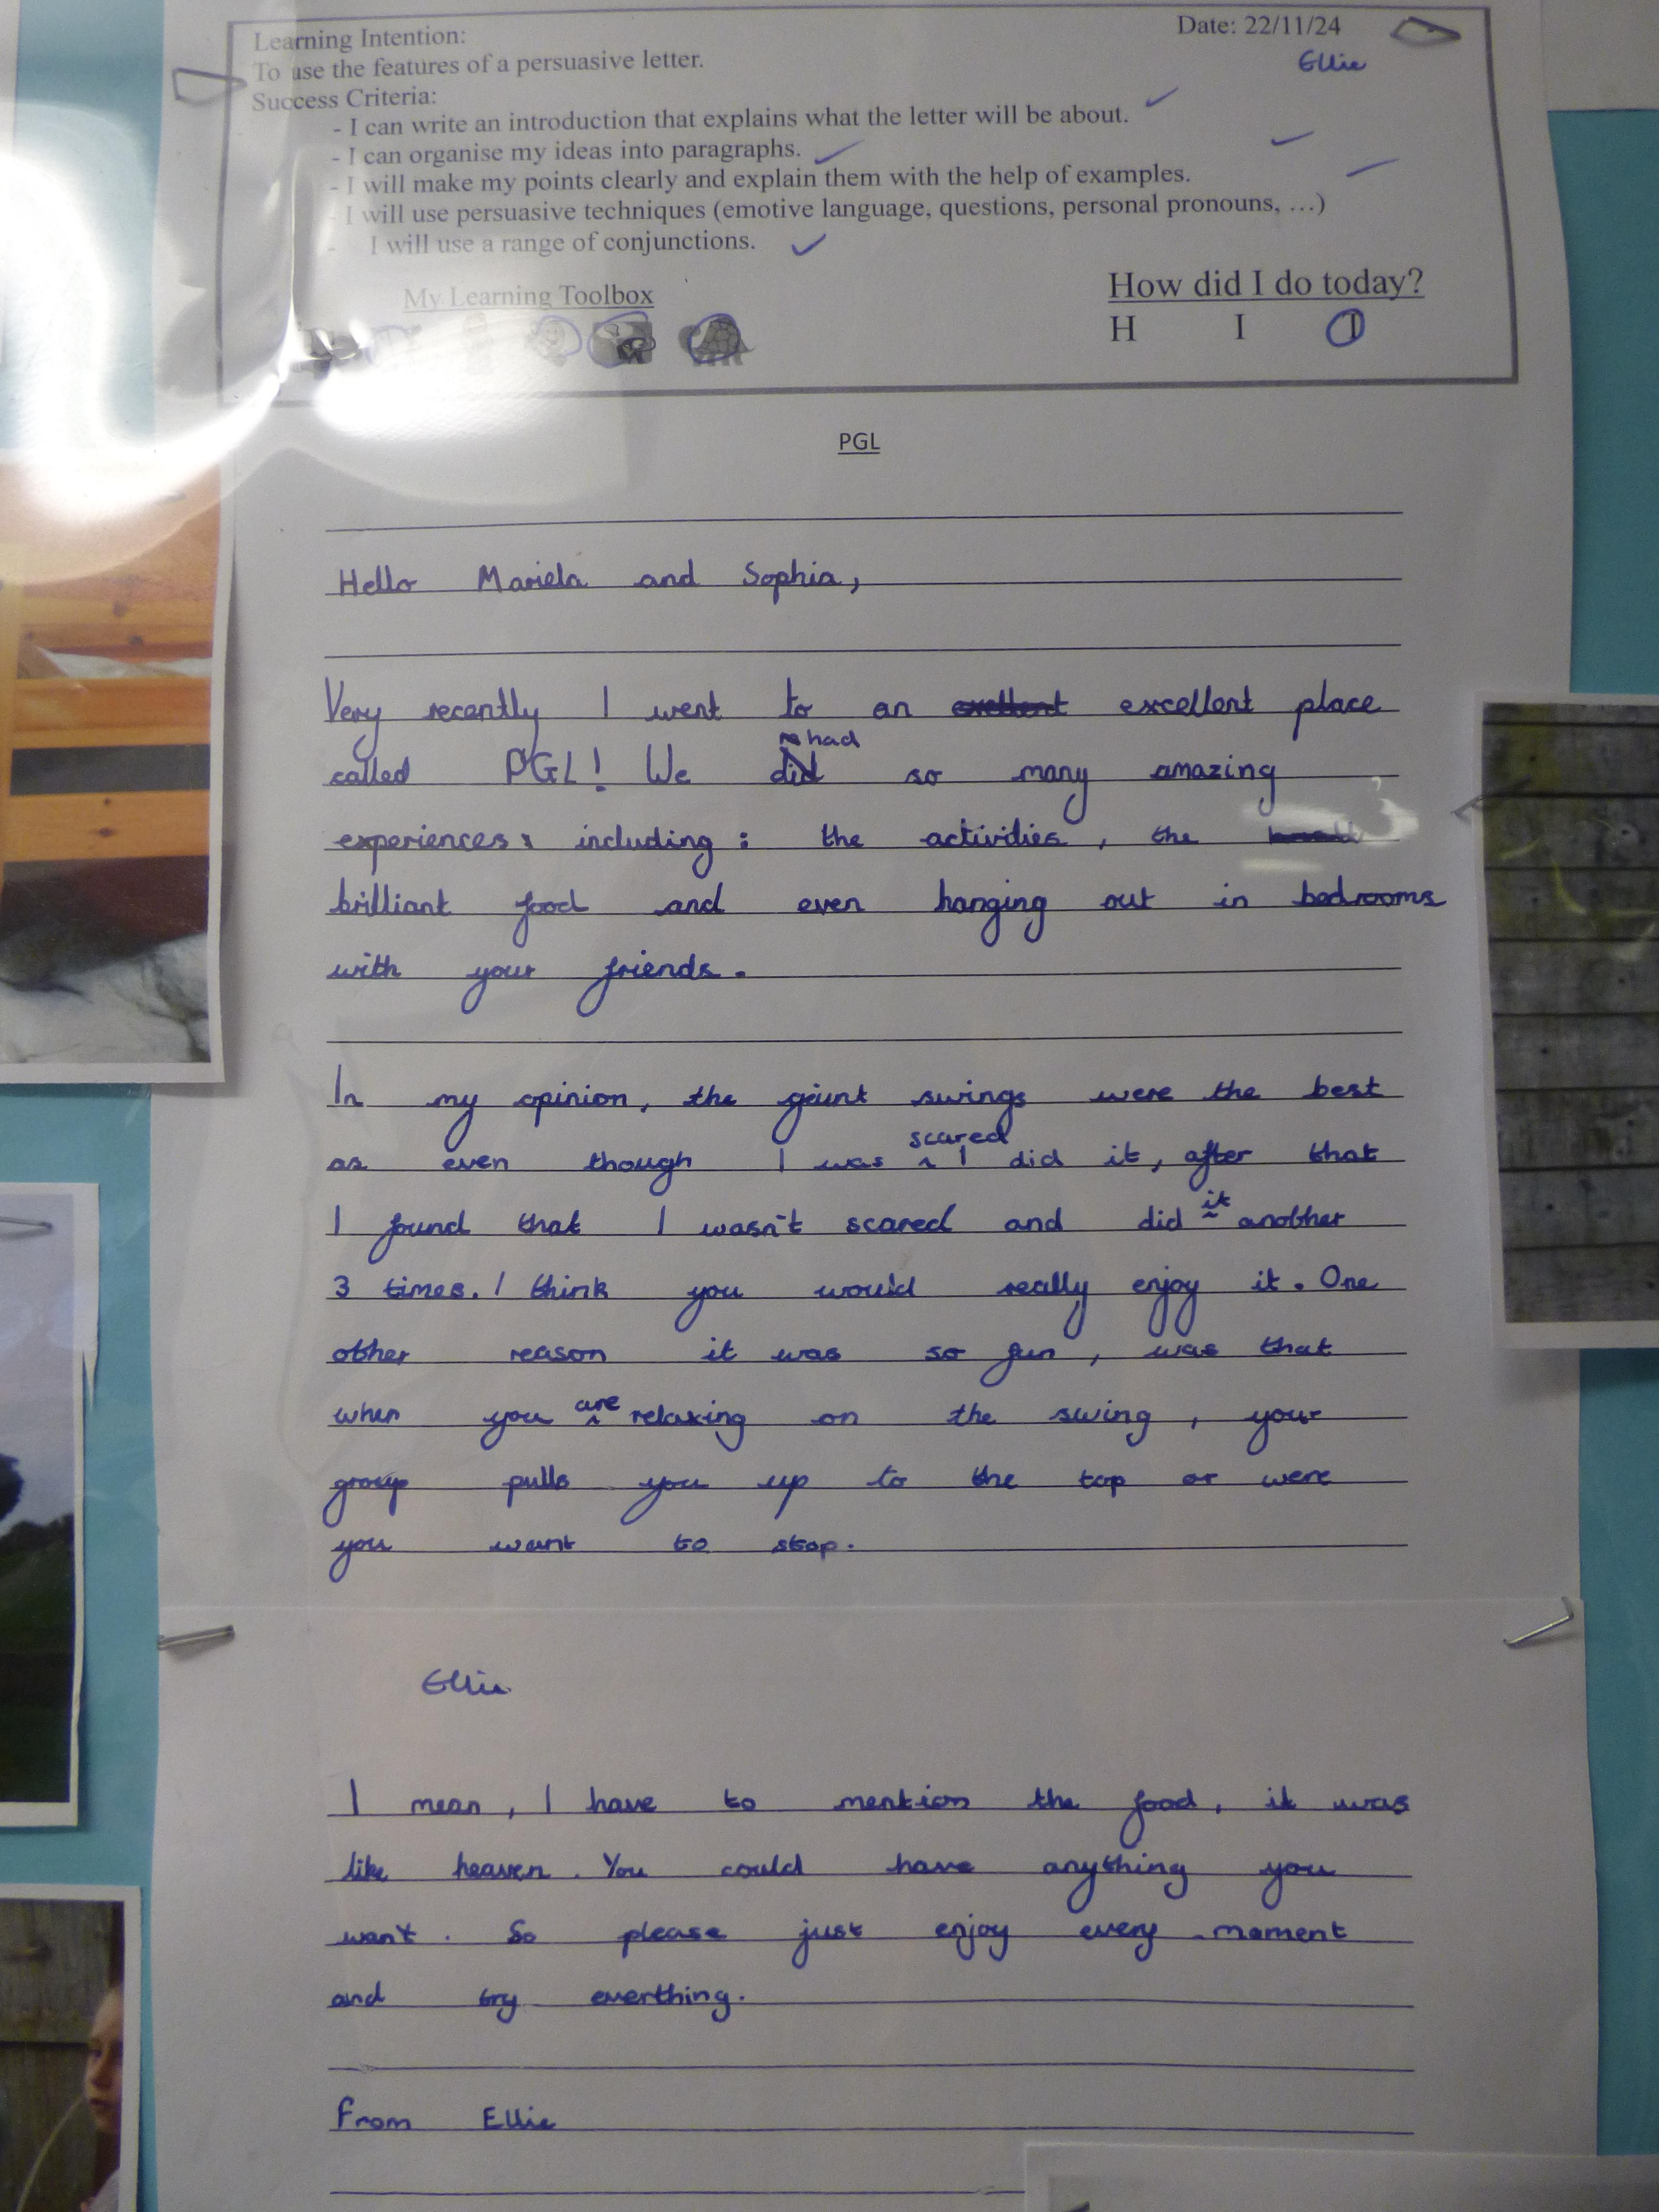 Learning Intention:
Date: 22/11/24
To use the features of a persuasive letter.
Ellie
Success Criteria:
- I can write an introduction that explains what the letter will be about.
- I can organise my ideas into paragraphs.
- I will make my points clearly and explain them with the help of examples.
- I will use persuasive techniques (emotive language, questions, personal pronouns, ...)
- I will use a range of conjunctions.
My Learning Toolbox
How did I do today?
H I I
PGL
Hello Mariela and Sophia,
Very recently I went to an exellent excellent place
had
called PGL! We did so many amazing
experiences: including: the activities, the
brilliant food and even hanging out in bedrooms
with your friends.
In my opinion, the gaint swings were the best
scared
as even though I was ^ I did it, after that
it
I found that I wasn't scared and did ^ another
3 times. I think you would really enjoy it. One
other reason it was so fun, was that
are
when you ^ relaxing on the swing, your
group pulls you up to the top or were
you want to stop.
Ellie
I mean, I have to mention the food, it was
like heaven. You could have anything you
want. So please just enjoy every moment
and try everthing.
From Ellie